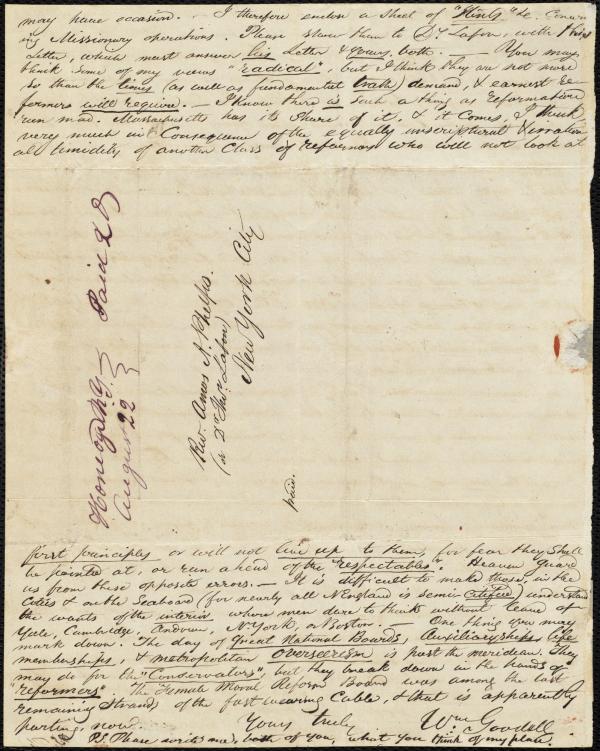 may have occasion. - I therefore enclose a Sheet of "Hints" &c. Concern
ing Missionary operations. Please show them to Dr Lafon, with this
Letter, which must answer his Letter & yours, both. — You may
think some of my views "radical", but I think they are not more
so than the times (as well as fundamental truth) demand, & earnest Re
formers will require. - I know there is such a thing as Reformation
run mad. Massachusetts has its share of it, & it comes, I think,
very much in Consequence of the equally unscriptural & irration
al timidity of another Class of reformers who will not look at
Honeoye NY
August 22
Paid 20
Rev. Amos A. Phelps.
(a Dr Thos. Lafon)
New York City
paid.
first principles or will not live up to them, for fear they shall
be pointed at, or run ahead of the "respectables". Heaven guard
us from these opposite errors. — It is difficult to make those in the
Cities & on the Seaboard (for nearly all N England is semi citified) understand
the wants of the interior where men dare to think without leave of
Yale, Cambridge, Andover, N-York, or Boston. — One thing you may
mark down. The day of Great National Boards, Auxiliaryships, life
memberships, & metropolitan overseerism is past the meridean. They
may do for the "Conservators", but they break down in the hands of
"reformers". The Female Moral Reform Board was among the last
remaining Strands of the fast wearing Cable, & that is apparently
parting, now. Yours truly Wm Goodell.
P.S. Please write me, both of you, what you think of my plans.